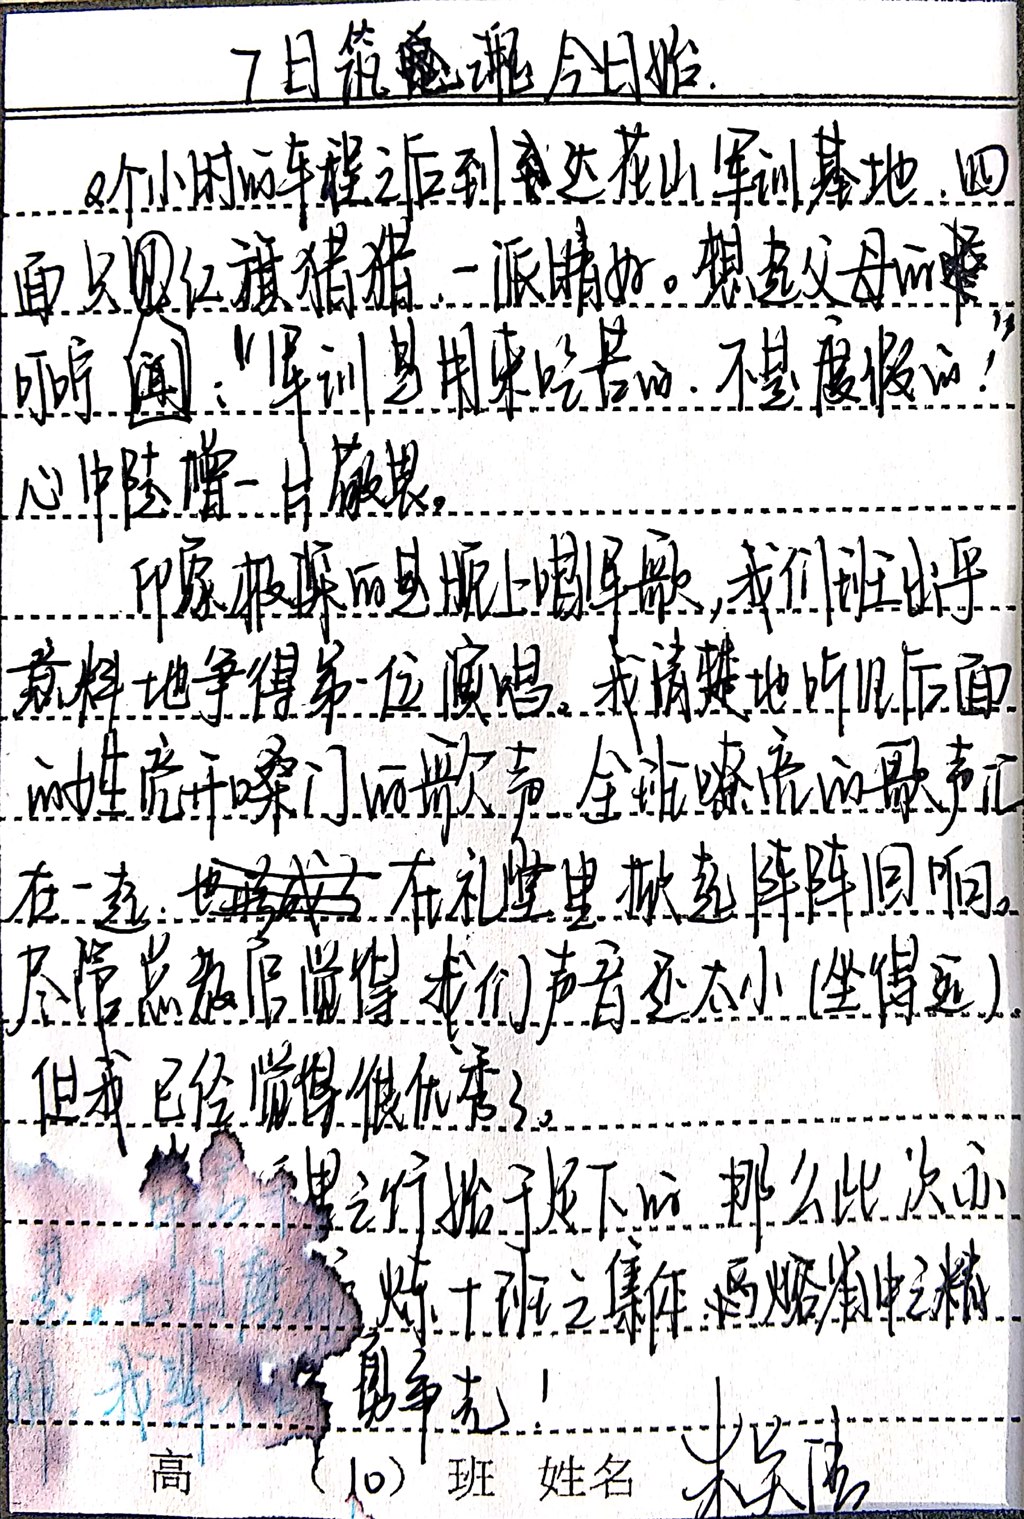 7日筑魂今日始.
2个小时的车程之后到达花山军训基地，四
面只见红旗猎猎，一派晴好。想起父母的
叮咛：“军训是用来吃苦的，不是度假的！”
心中陡增一片敬畏。
印象极深的是晚上唱军歌，我们班出乎
意料地争得第一位演唱。我清楚地听见后面
的女生亮开嗓门的歌声，全班嘹亮的歌声汇
在一起，在礼堂里掀起阵阵回响。
尽管总教官觉得我们声音还太小（坐得远），
但我已经觉得很优秀了。
里之行始于足下的，那么此次亦
是。七日 炼十班之集体，中之精
我 勇争先！
高 （10）班 姓名